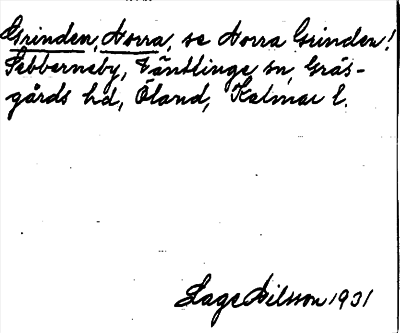 Grinden, Norra, se Norra Grinden!
Sebberneby, Ventlinge sn, Gräs-
gårds hd, Öland, Kalmar l.
Lage Nilsson 1931